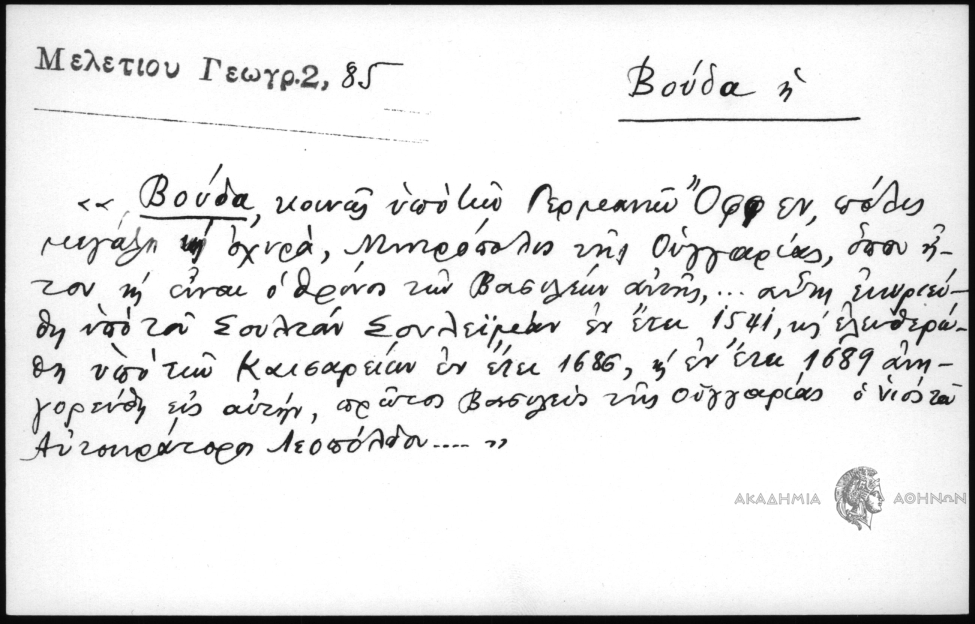 Μελετίου Γεωγρ.2, 85
Βούδα ἡ
«Βούδα, κοινῶς ὑπὸ τῶν Γερμανῶν Ὄφφεν, πόλις
μεγάλη καὶ ὀχυρά, Μητρόπολις τῆς Οὑγγαρίας, ὅπου ἦ-
τον καὶ εἶναι ὁ θρόνος τῶν Βασιλέων αὐτῆς,... αὕτη ἐκυριεύ-
θη ὑπὸ τοῦ Σουλτὰν Σουλεϊμὰν ἐν ἔτει 1541, καὶ ἐλευθερώ-
θη ὑπὸ τῶν Καισαρείων ἐν ἔτει 1686, καὶ ἐν ἔτει 1689 ἀνη-
γορεύθη εἰς αὐτήν, πρῶτος Βασιλεὺς τῆς Οὑγγαρίας ὁ υἱὸς τοῦ
Αὐτοκράτορος Λεοπόλδου.... »
ΑΚΑΔΗΜΙΑ ΑΘΗΝΩΝ